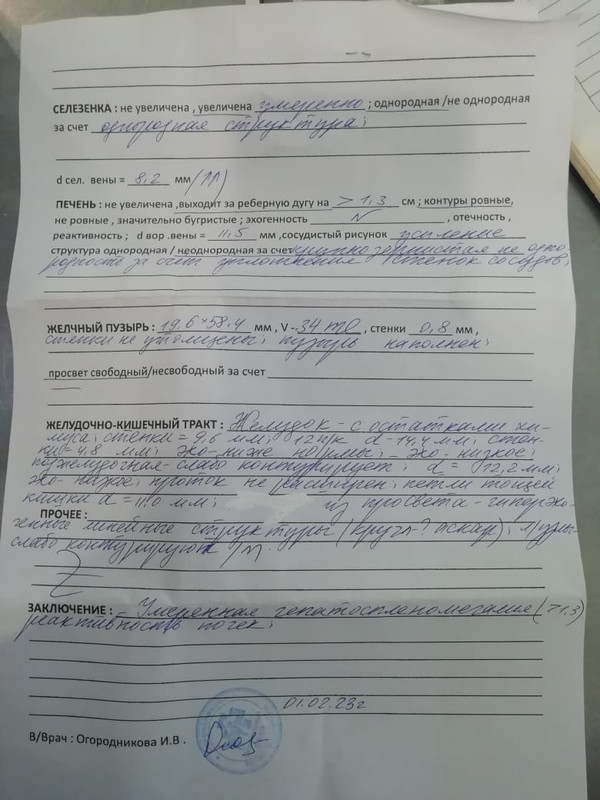 СЕЛЕЗЕНКА : не увеличена , увеличена умеренно ; однородная /не однородная
за счет однородная структура;
d сел. вены = 8,2 мм
ПЕЧЕНЬ : не увеличена ,выходит за реберную дугу на > 1,3 см ; контуры ровные,
не ровные , значительно бугристые ; эхогенность N , отечность ,
реактивность ; d вор .вены = 11,5 мм ,сосудистый рисунок усиление
структура однородная / неоднородная за счет крупнозернистая не одно
родность за счет уплотнения стенок сосудов;
ЖЕЛЧНЫЙ ПУЗЫРЬ : 19,6*58,4 мм , V - 34 ml , стенки 0,8 мм ,
стенки не утолщены; пузырь наполнен;
просвет свободный/несвободный за счет
ЖЕЛУДОЧНО-КИШЕЧНЫЙ ТРАКТ : Желудок - с остатками хи-
муса; стенки = 9,6 мм; 12 п/к d - 14,4 мм; стен-
ки = 4,8 мм; эхо- ниже нормы; эхо- низкое;
поджелудочная - слабо контурирует; d = 12,2 мм;
эхо- низкое; проток не расширен; петли тощей
кишки d = 11,0 мм; из просвета - гиперэхо-
ПРОЧЕЕ :
генные линейные структуры (кругл-? аскар); л/узлы-
слабо контурируют
ЗАКЛЮЧЕНИЕ : Умеренная гепатоспленомегалия (>1,3)
реактивность почек;
01.02.23г
В/Врач : Огородникова И.В .